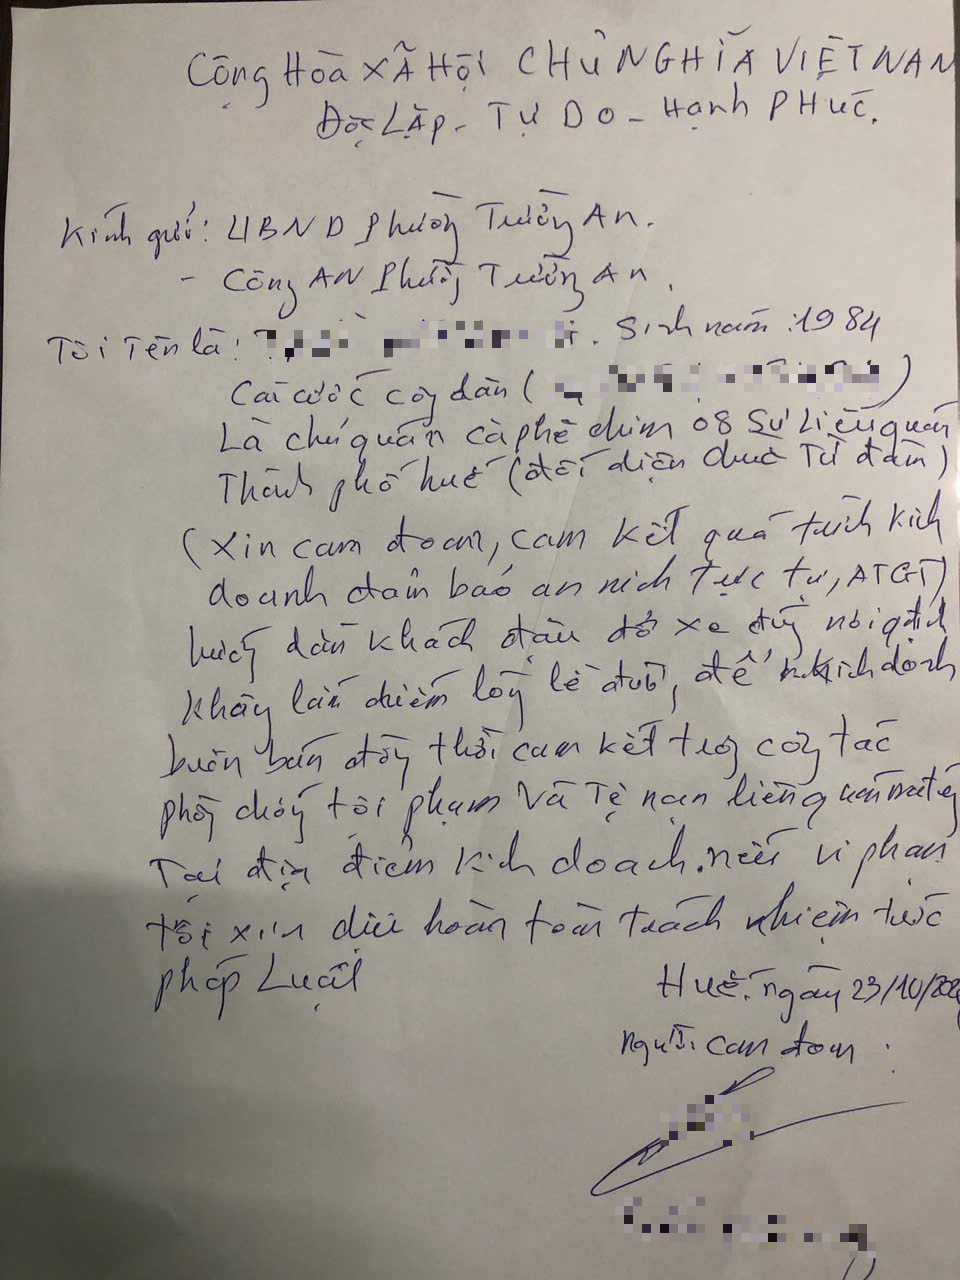 Cộng Hòa Xã Hội CHỦ NGHĨA VIỆT NAM
Độc Lập - Tự Do - Hạnh Phúc.
Kính gửi: UBND Phường Trường An.
- Công AN Phường Trường An.
Tôi Tên là: . Sinh năm: 1984
Căn cước công dân ( )
Là chủ quán cà phê chim 08 Sư Liễu Quán
Thành phố huế (đối diện chùa Từ đàm)
(Xin cam đoan, cam kết quá trình kinh
doanh đảm bảo an ninh trực tự, ATGT)
hướng dẫn khách đậu đỗ xe đúng nơi qđịnh
không lấn chiếm lòng lề đường, để kinh doanh
buôn bán đồng thời cam kết trong công tác
phòng chống tội phạm và Tệ nạn liên quan
Tại địa điểm kinh doanh. nếu vi phạm
tôi xin chịu hoàn toàn trách nhiệm trước
pháp Luật
Huế. ngày 23/10/
người cam đoan :